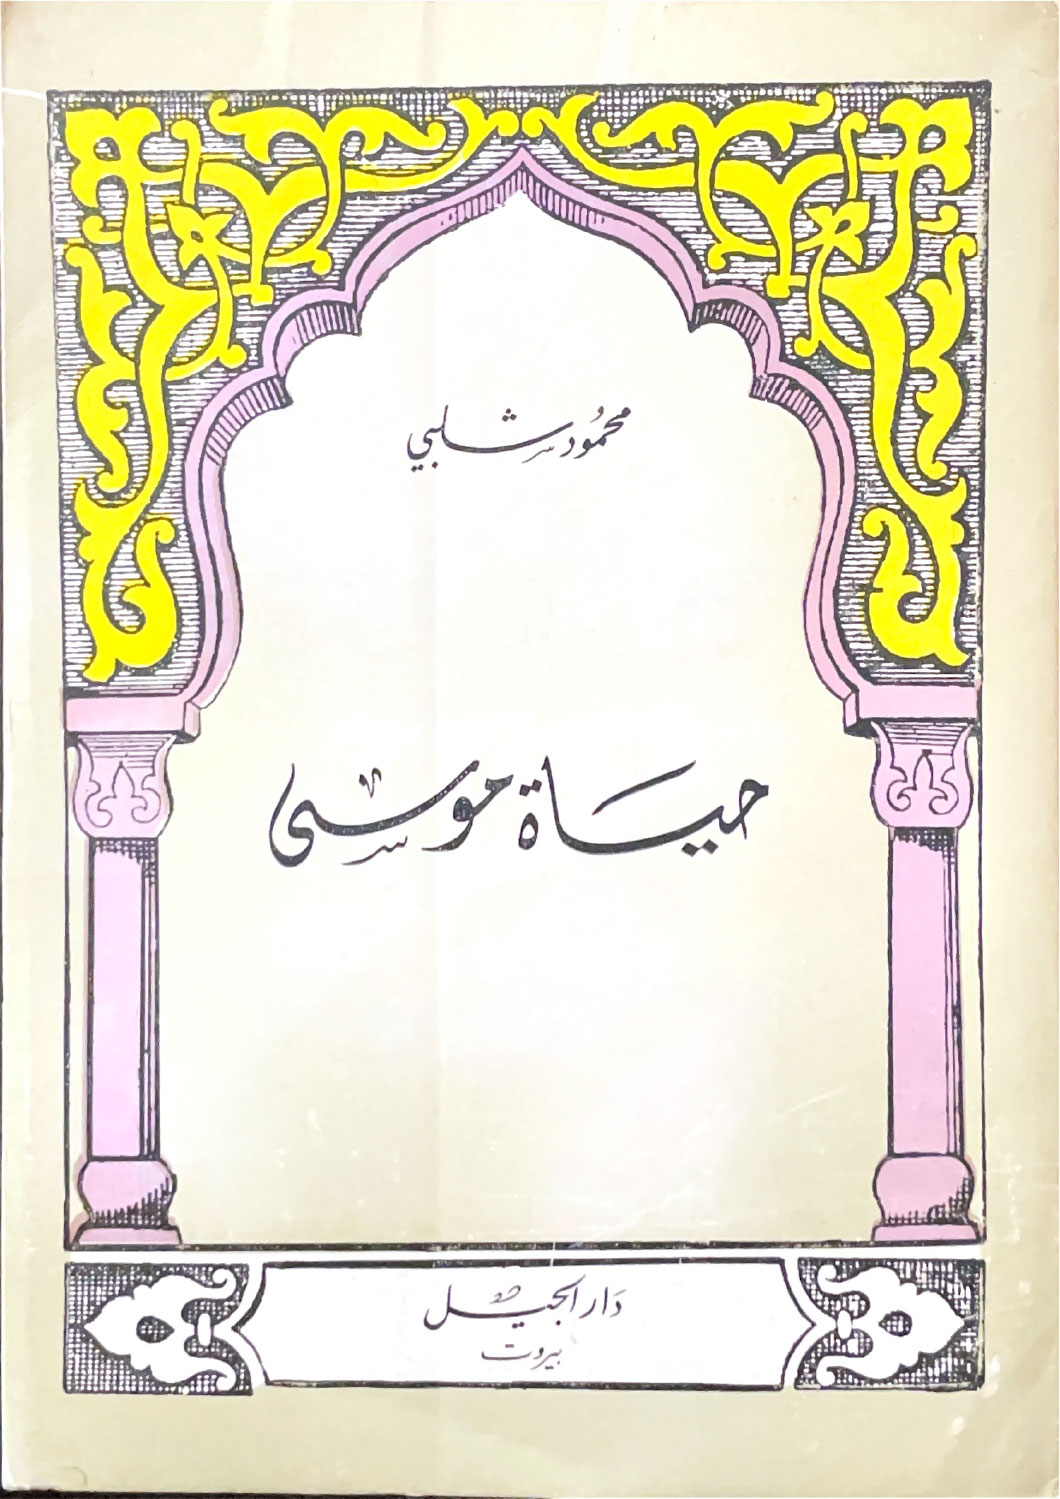 محمود شلبي
حياة موسى
دار الجيل
بيروت